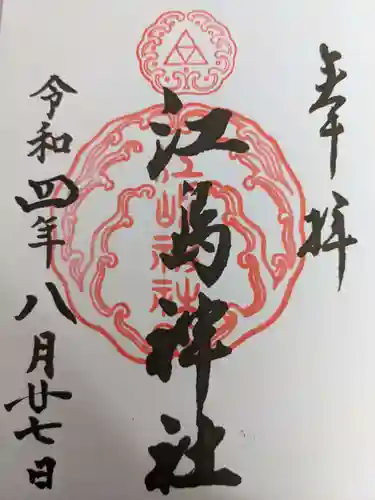 奉拝
江島神社
江島神社
令和四年八月廿七日